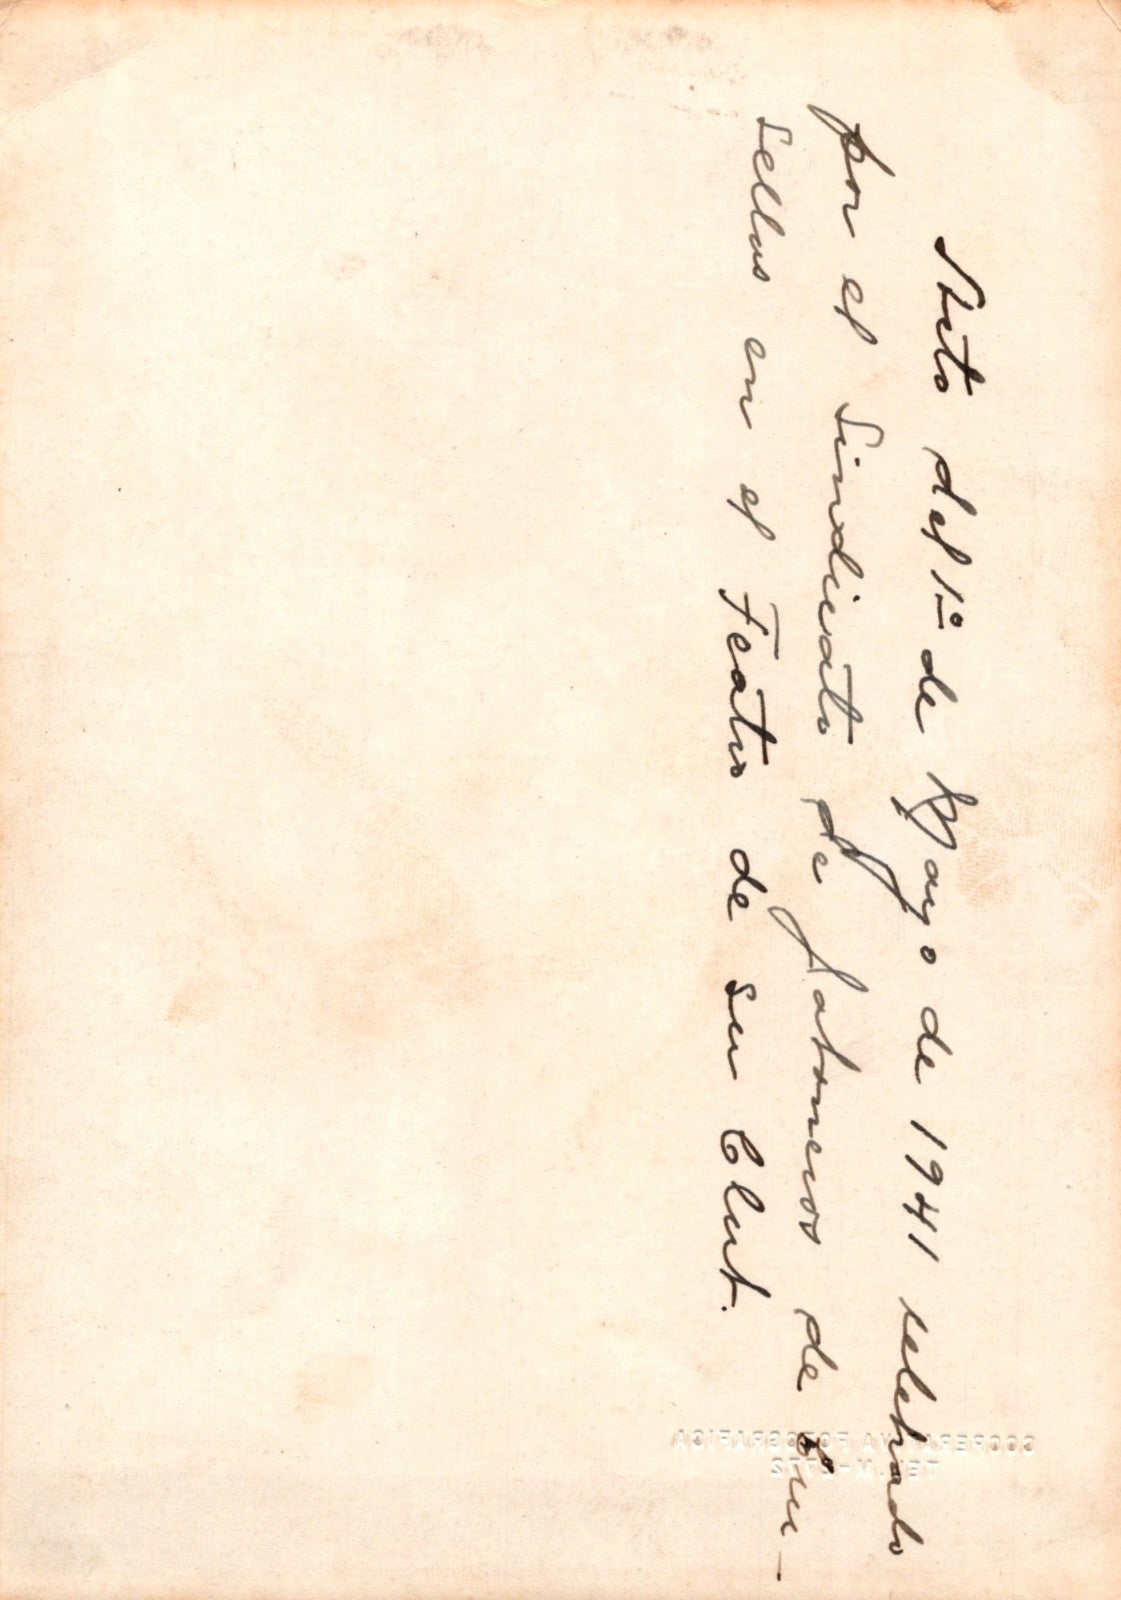 Acto del 1º de Mayo de 1941 celebrado
por el Sindicato de Jaboneros de Cru-
sellas en el Teatro de su Club.
COOPERATIVA FOTOGRAFICA
TEL. M-2772